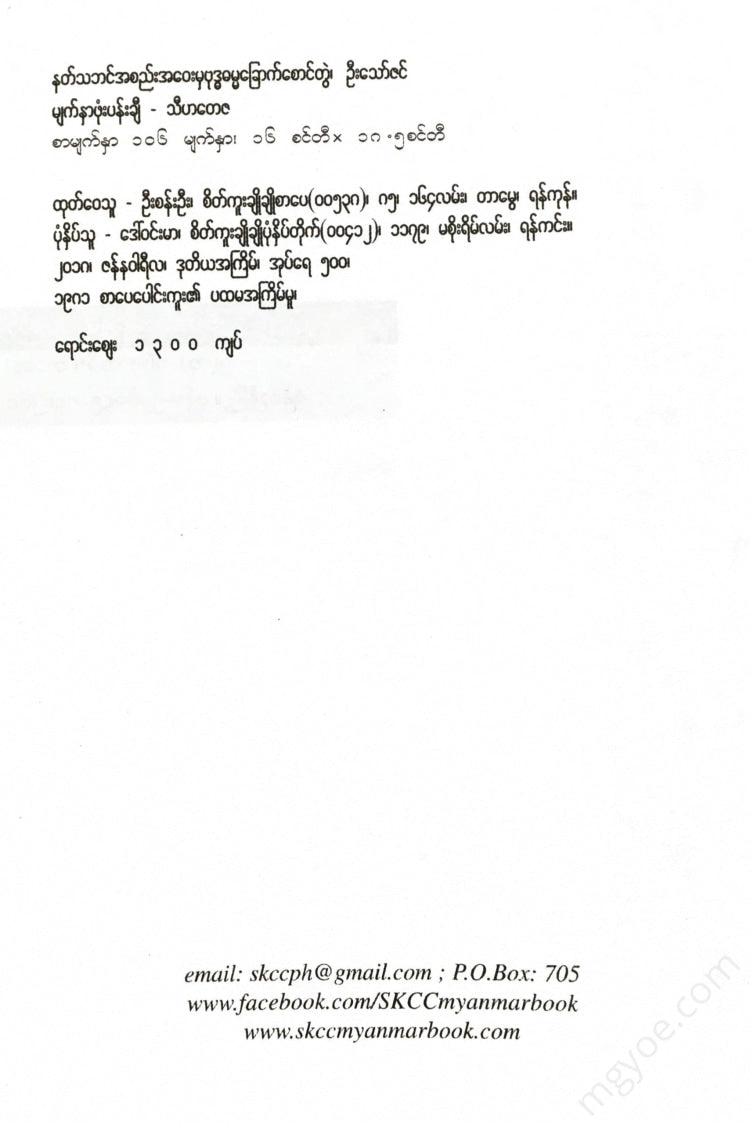 နတ်သဘင်အစည်းအဝေးမှဗုဒ္ဓဓမ္မခြောက်စောင်တွဲ၊ ဦးသော်ဇင်
မျက်နှာဖုံးပန်းချီ - သီဟတေဇ
စာမျက်နှာ ၁၀၆ မျက်နှာ၊ ၁၆ စင်တီ× ၁၈.၅စင်တီ
ထုတ်ဝေသူ - ဦးစန်းဦး၊ စိတ်ကူးချိုချိုစာပေ(၀၀၅၃၈)၊ ၈၅၊ ၁၆၄လမ်း၊ တာမွေ၊ ရန်ကုန်။
ပုံနှိပ်သူ - ဒေါ်ဝင်းမာ၊ စိတ်ကူးချိုချိုပုံနှိပ်တိုက်(၀၀၄၁၂)၊ ၁၁၇၉၊ မစိုးရိမ်လမ်း၊ ရန်ကင်း။
၂၀၁၈၊ ဇန်နဝါရီလ၊ ဒုတိယအကြိမ်၊ အုပ်ရေ ၅၀၀၊
၁၉၈၁ စာပေပေါင်းကူး၏ ပထမအကြိမ်မူ၊
ရောင်းဈေး ၁၃၀၀ ကျပ်
email: skccph@gmail.com ; P.O.Box: 705
www.facebook.com/SKCCmyanmarbook
www.skccmyanmarbook.com
mgyoe.com